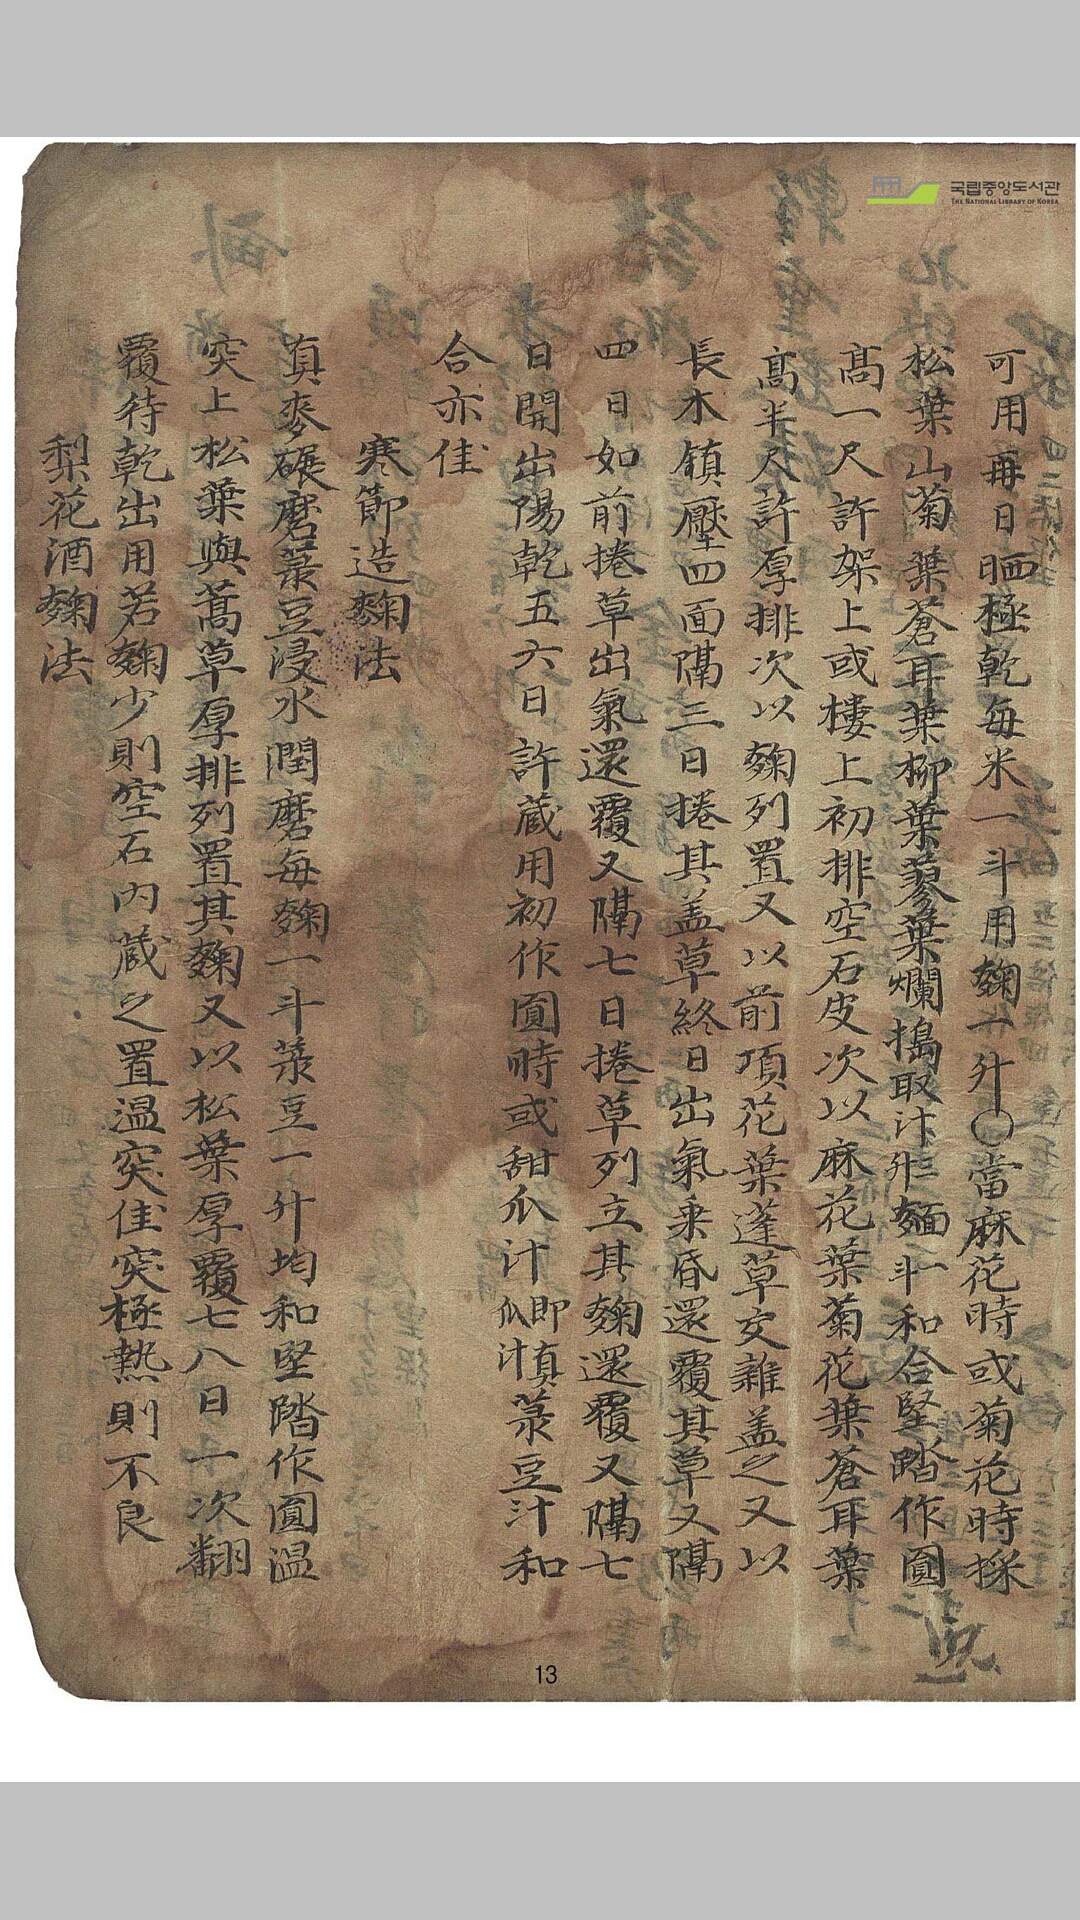 국립중앙도서관
THE NATIONAL LIBRARY OF KOREA
可用再日晒極乾每米一斗用麴一升〇當麻花時或菊花時採
松葉山菊葉蒼耳葉柳葉蓼葉爛搗取汁三升麵一斗和合堅踏作圓
高一尺許架上或樓上初排空石皮次以麻花葉菊花葉蒼耳葉
高半尺許厚排次以麴列置又以前項花葉蓬草交雜盖之又以
長木鎭壓四面隔三日捲其盖草終日出氣乘昏還覆其草又隔
四日如前捲草出氣還覆又隔七日捲草列立其麴還覆又隔七
日開出陽乾五六日許藏用初作圓時或甜瓜汁即真瓜汁菉豆汁和
合亦佳
寒節造麴法
眞麥碾磨菉豆浸水潤磨每麴一斗菉豆一升均和堅踏作圓溫
突上松葉與蒿草厚排列置其麴又以松葉厚覆七八日一次翻
覆待乾出用若麴少則空石內藏之置溫突佳突極熱則不良
梨花酒麴法
13